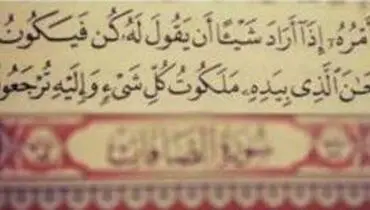 أَمْرُهُۥٓ إِذَآ أَرَادَ شَيْـًٔا أَن يَقُولَ لَهُۥ كُن فَيَكُونُ
حَـٰنَ ٱلَّذِى بِيَدِهِۦ مَلَكُوتُ كُلِّ شَىْءٍ وَإِلَيْهِ تُرْجَعُو
سُورَةُ الصَّافَّاتِ